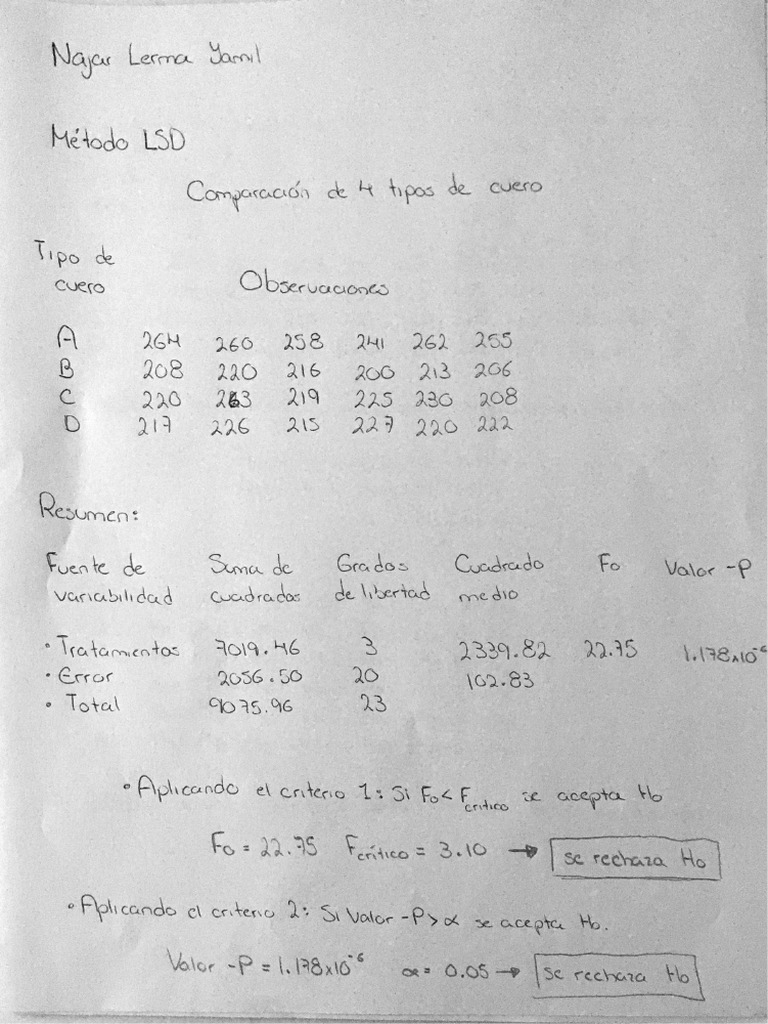 Najar Lerma Yamil
Método LSD
Comparación de 4 tipos de cuero
Tipo de
cuero Observaciones
A 264 260 258 241 262 255
B 208 220 216 200 213 206
C 220 263 219 225 230 208
D 217 226 215 227 220 222
Resumen:
Fuente de Suma de Grados Cuadrado Fo Valor -P
variabilidad cuadrados de libertad medio
• Tratamientos 7019.46 3 2339.82 22.75 1.178x10⁻⁶
• Error 2056.50 20 102.83
• Total 9075.96 23
• Aplicando el criterio 1: Si Fo < Fcrítico se acepta Ho
Fo = 22.75 Fcrítico = 3.10 → se rechaza Ho
• Aplicando el criterio 2: Si Valor -P > α se acepta Ho.
Valor -P = 1.178x10⁻⁶ α = 0.05 → se rechaza Ho